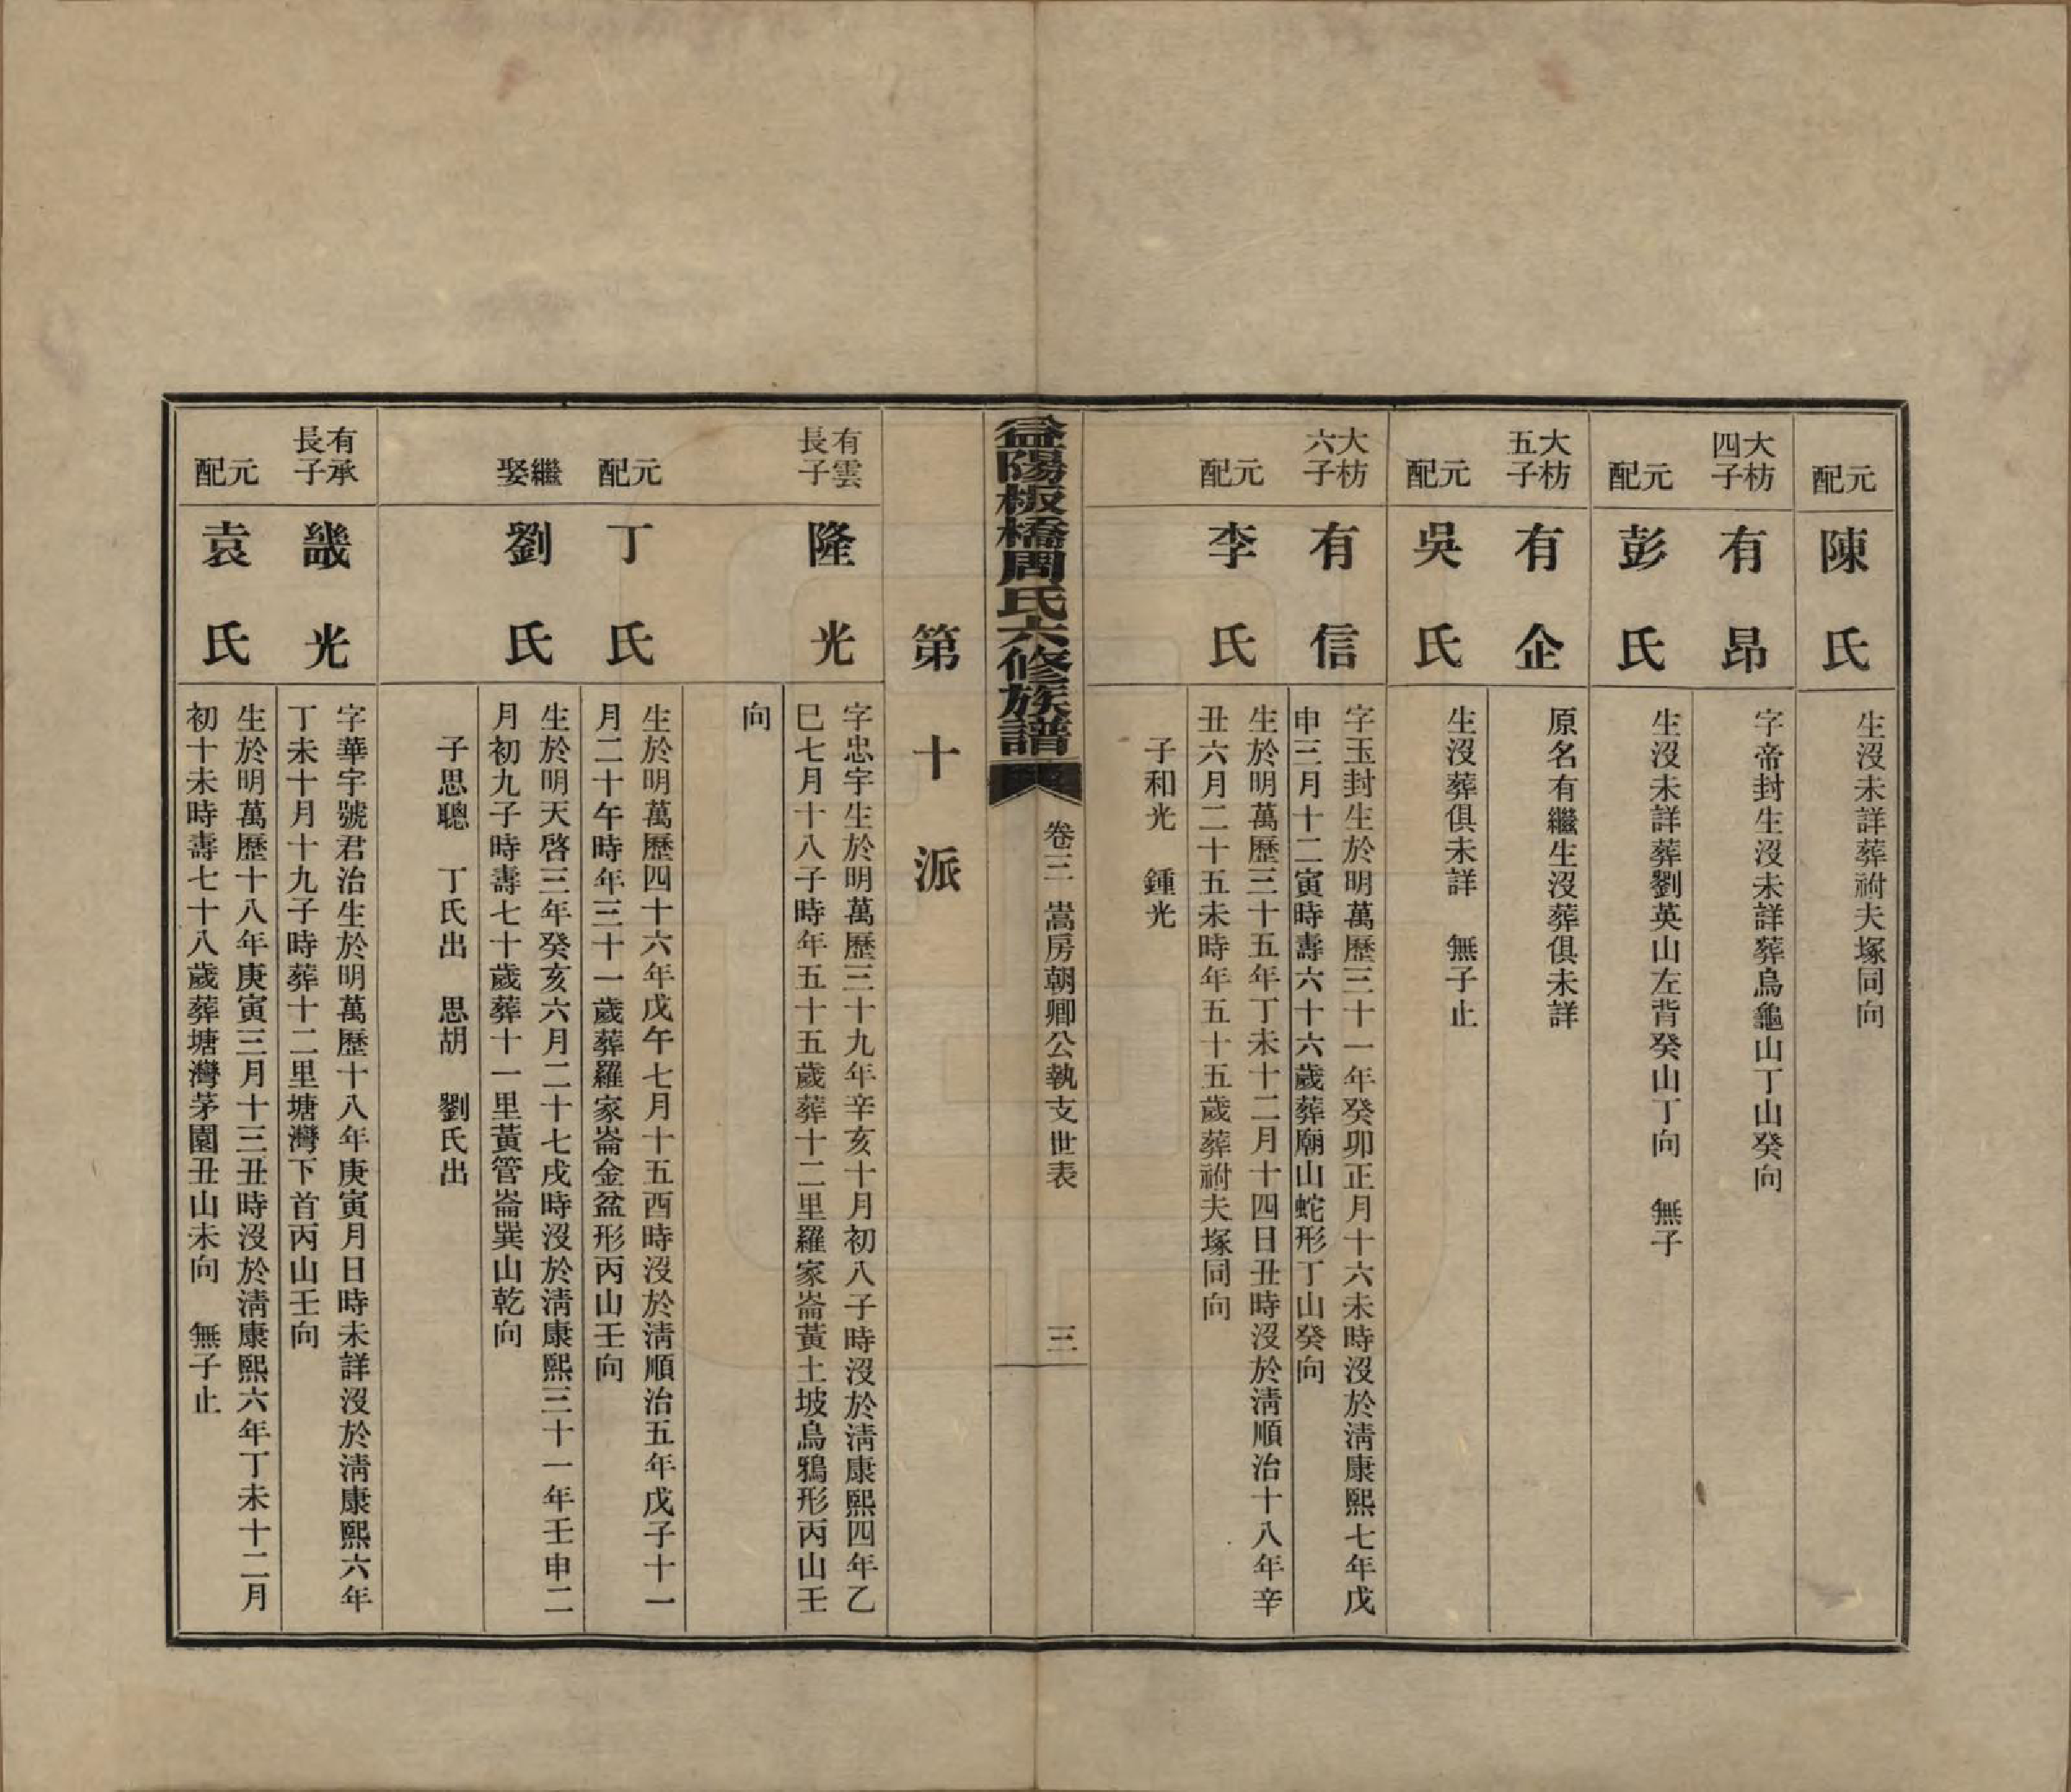 元配
陳氏
生沒未詳葬祔夫塚同向
大枋
四子
有昂
字帝封生沒未詳葬烏龜山丁山癸向
元配
彭氏
生沒未詳葬劉英山左背癸山丁向　無子
大枋
五子
有企
原名有繼生沒葬俱未詳
元配
吳氏
生沒葬俱未詳　無子止
大枋
六子
有信
字玉封生於明萬歷三十一年癸卯正月十六未時沒於淸康熙七年戊
申三月十二寅時壽六十六歲葬廟山蛇形丁山癸向
元配
李氏
生於明萬歷三十五年丁未十二月十四日丑時沒於淸順治十八年辛
丑六月二十五未時年五十五歲葬祔夫塚同向
子和光　鍾光
益陽板橋周氏六修族譜
卷三　嵩房朝卿公執支世表　三
第十派
有雲
長子
隆光
字忠宇生於明萬歷三十九年辛亥十月初八子時沒於淸康熙四年乙
巳七月十八子時年五十五歲葬十二里羅家崙黃土坡烏鴉形丙山壬
向
元配
丁氏
生於明萬歷四十六年戊午七月十五酉時沒於淸順治五年戊子十一
月二十午時年三十一歲葬羅家崙金盆形丙山壬向
繼娶
劉氏
生於明天啓三年癸亥六月二十七戌時沒於淸康熙三十一年壬申二
月初九子時壽七十歲葬十一里黃管崙巽山乾向
子思聰　丁氏出　思胡　劉氏出
有承
長子
畿光
字華宇號君治生於明萬歷十八年庚寅月日時未詳沒於淸康熙六年
丁未十月十九子時葬十二里塘灣下首丙山壬向
元配
袁氏
生於明萬歷十八年庚寅三月十三丑時沒於淸康熙六年丁未十二月
初十未時壽七十八歲葬塘灣茅園丑山未向　無子止